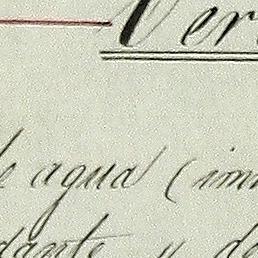 Ver
de agua (im
dante y de